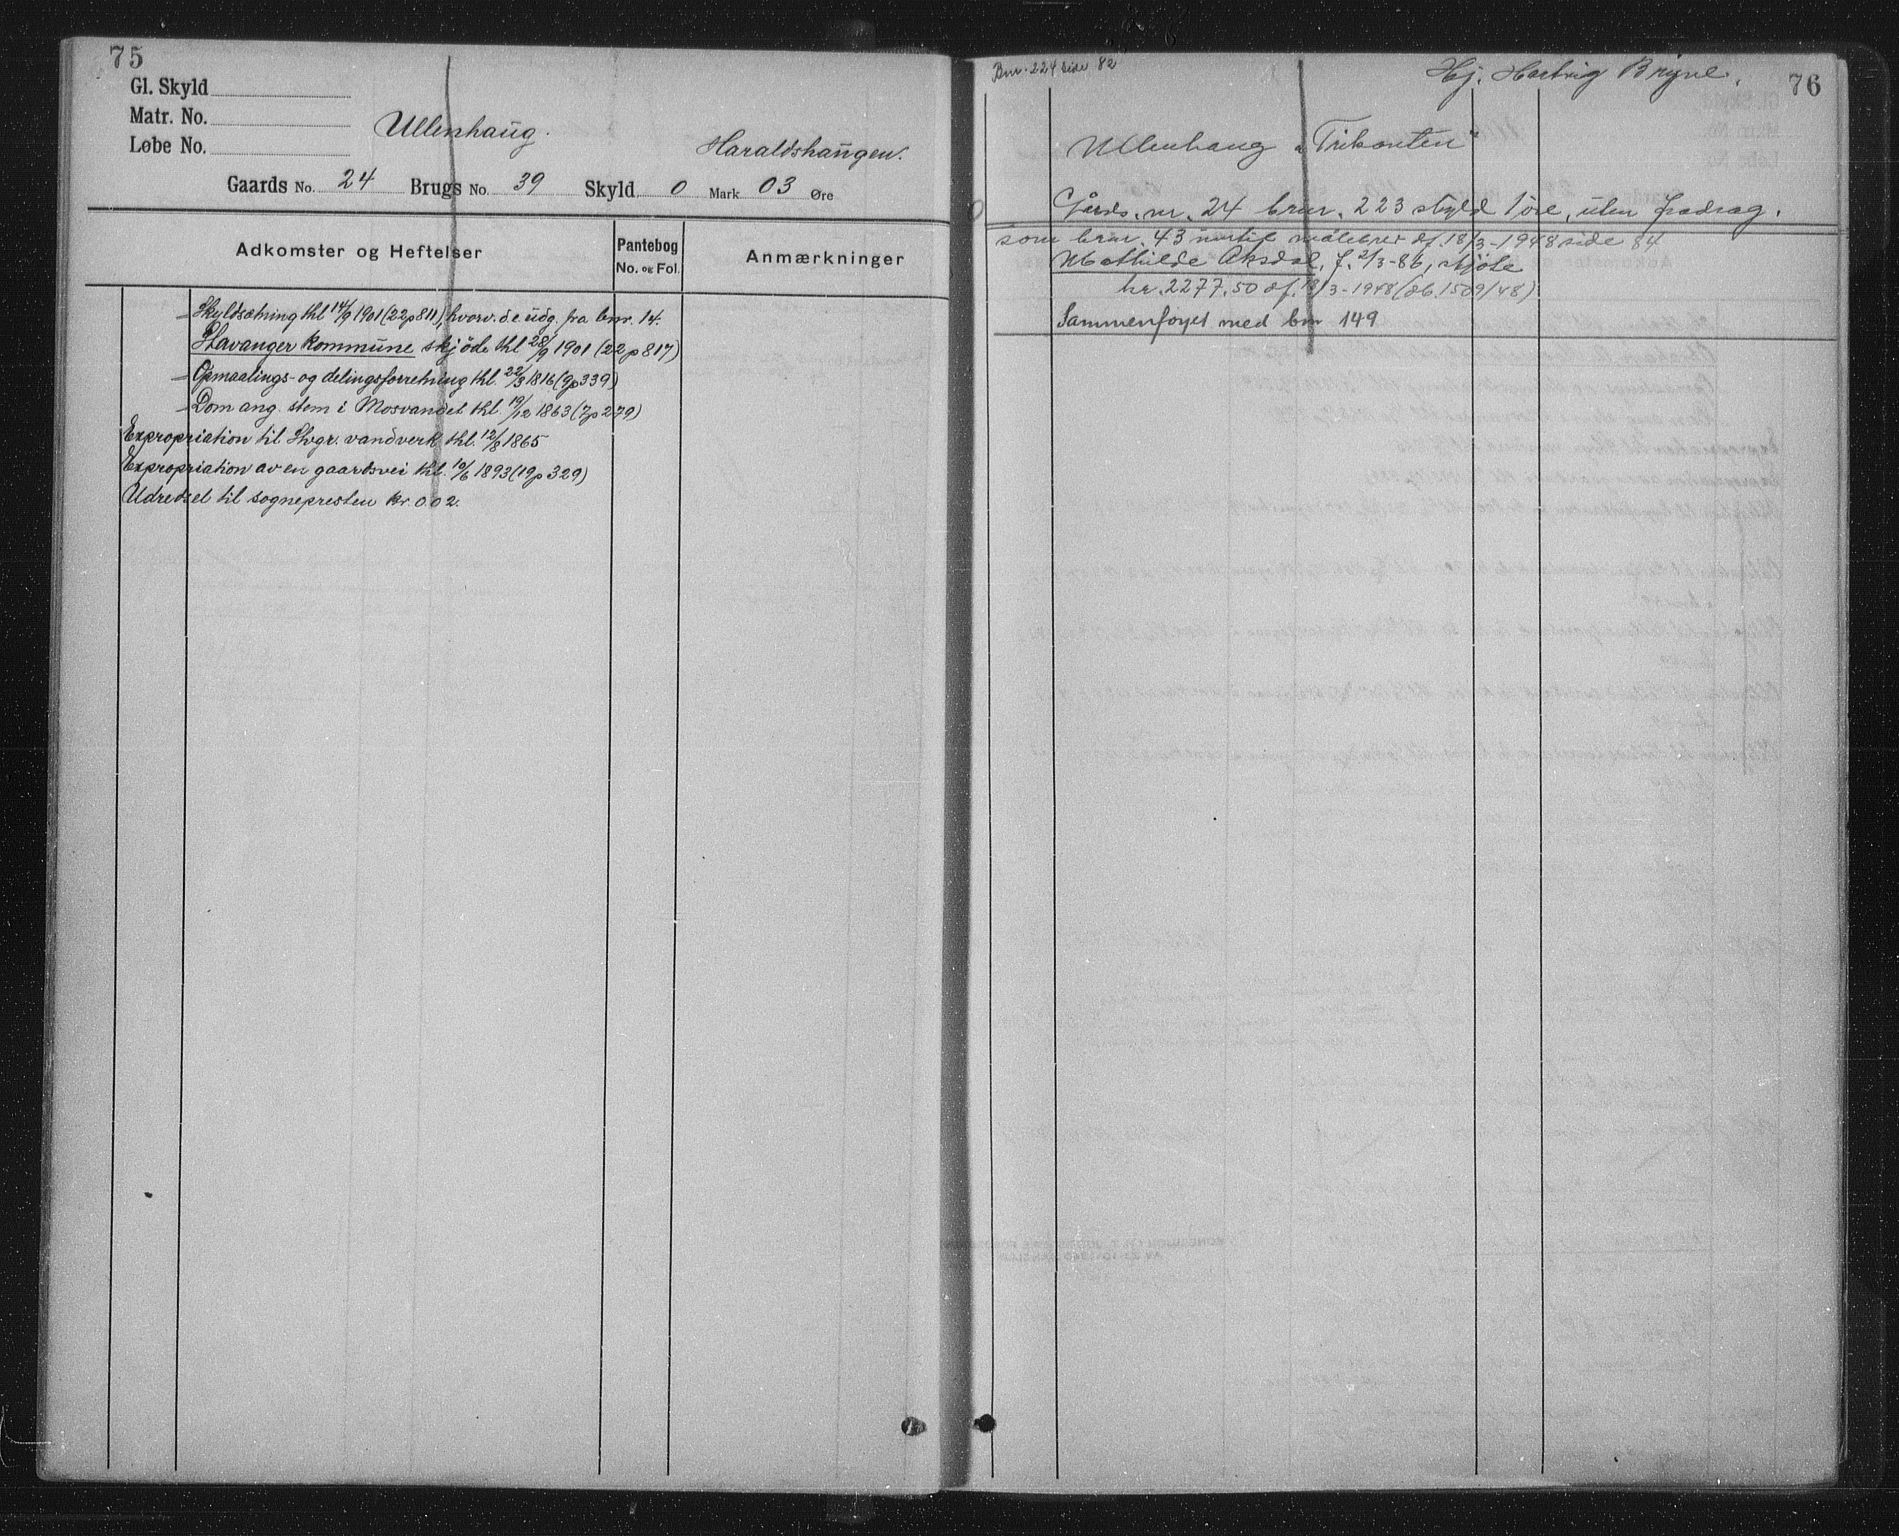 75
Gl. Skyld
Matr. No.
Løbe No.
Ullenhaug.
Haraldshaugen.
Gaards No. 24 Brugs No. 39 Skyld 0 Mark 03 Øre
Adkomster og Heftelser
Pantebog
No. og Fol.
Anmærkninger
Skyldsætning thl 14/9 1901 (22p811), hvorv. de udg. fra bnr. 14.
Stavanger kommune skjöde thl 28/9 1901 (22p817)
Opmaalings- og delingsforretning thl. 22/3 1816 (9p339)
Dom ang. stem i Mosvandet thl. 19/12 1863 (7p279)
Expropriation til Stvgr. vandverk thl. 12/8 1865
Expropriation av en gaardsvei thl. 10/6 1893 (19p329)
Udredsel til sognepresten kr. 0.02.
Bnr. 224 side 82
Hj. Hartvig Bryne.
76
Ullenhaug "Trikanten"
Gårds. nr. 24 bnr. 223 skyld 1 øre, uten fradrag.
som bnr. 43 målebrev df. 18/3-1948 side 84
Mathilde Aksdal, f. 2/3-86, skjøte
kr. 2277.50 df. 18/3-1948 (db. 1509/48)
Sammenføyet med bnr 149